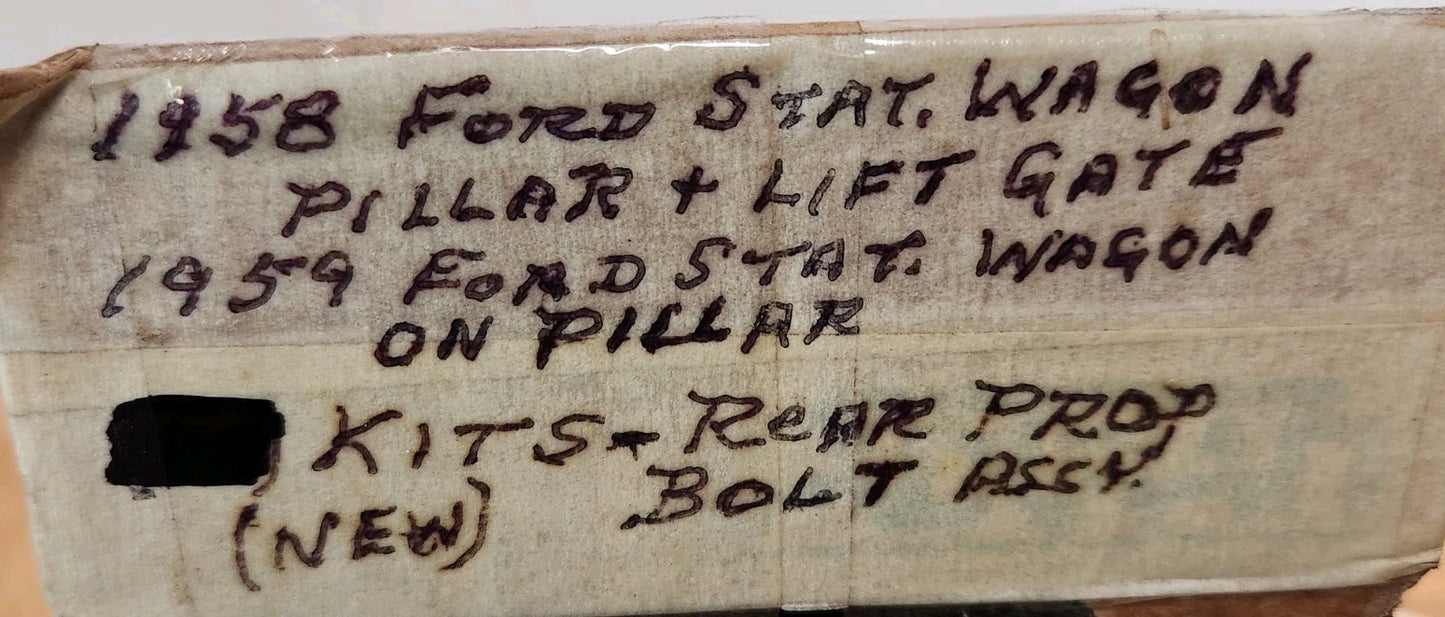 1958 FORD STAT. WAGON
PILLAR + LIFT GATE
1959 FORD STAT. WAGON
ON PILLAR
) KITS - ReAR PROP
(NEW) BOLT ASSY.